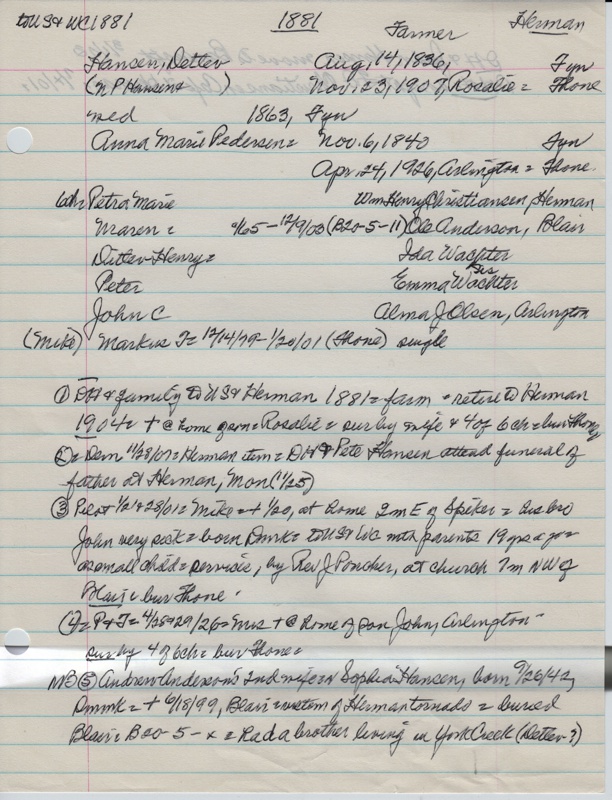 to US & WC 1881 1881 Farmer Herman
Hansen, Detlev Aug, 14, 1836, Fyn
(N P Hansen ) Nov. 23, 1907, Rosalie = Thone
med 1863, Fyn
Anna Marie Pedersen = Nov. 6, 1840 Fyn
Apr. 24, 1926, Arlington = Thone
6ch = Petra Marie Wm Henry Christiansen, Herman
Maren = 9/65 - 12/9/03 (B20-5-11) Ole Anderson, Blair
Ditlev Henry = Ida Wachter
Peter Emma Wachter sis
John C Alma J Olsen, Arlington
(Mike) Markus T = 12/14/79 - 1/20/01 (Thone) single
① DH & family to US & Herman 1881 = farm = retire to Herman
1904 = + @ home = Rosalie = sur by wife & 4 of 6 ch = bur Thone
② = Dem 11/28/07 = Herman item = DH & Pete Hansen attend funeral of
father at Herman, Mon (11/25)
③ Pilot 1/28/01 = Mike = + 1/20, at home 2m E of Spiker = his bro
John very sick = born Dmk = to US & WC with parents 19 yrs ago =
as small child = services, by Rev J Poucher, at church 7m NW of
Blair = bur Thone.
④ = P & T = 4/28 & 29/26 = Mrs + @ home of son John, Arlington -
sur by 4 of 6 ch = bur Thone =
NB ⑤ Andrew Anderson's 2nd wife = Sophia Hansen, born 9/26/42,
Dmmk = + 6/18/99, Blair = victim of Herman tornado = buried
Blair = B20-5-x = had a brother living in York Creek (Detlev?)